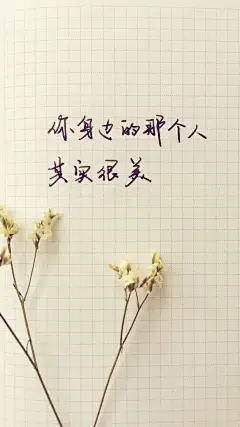 你身边的那个人
其实很美